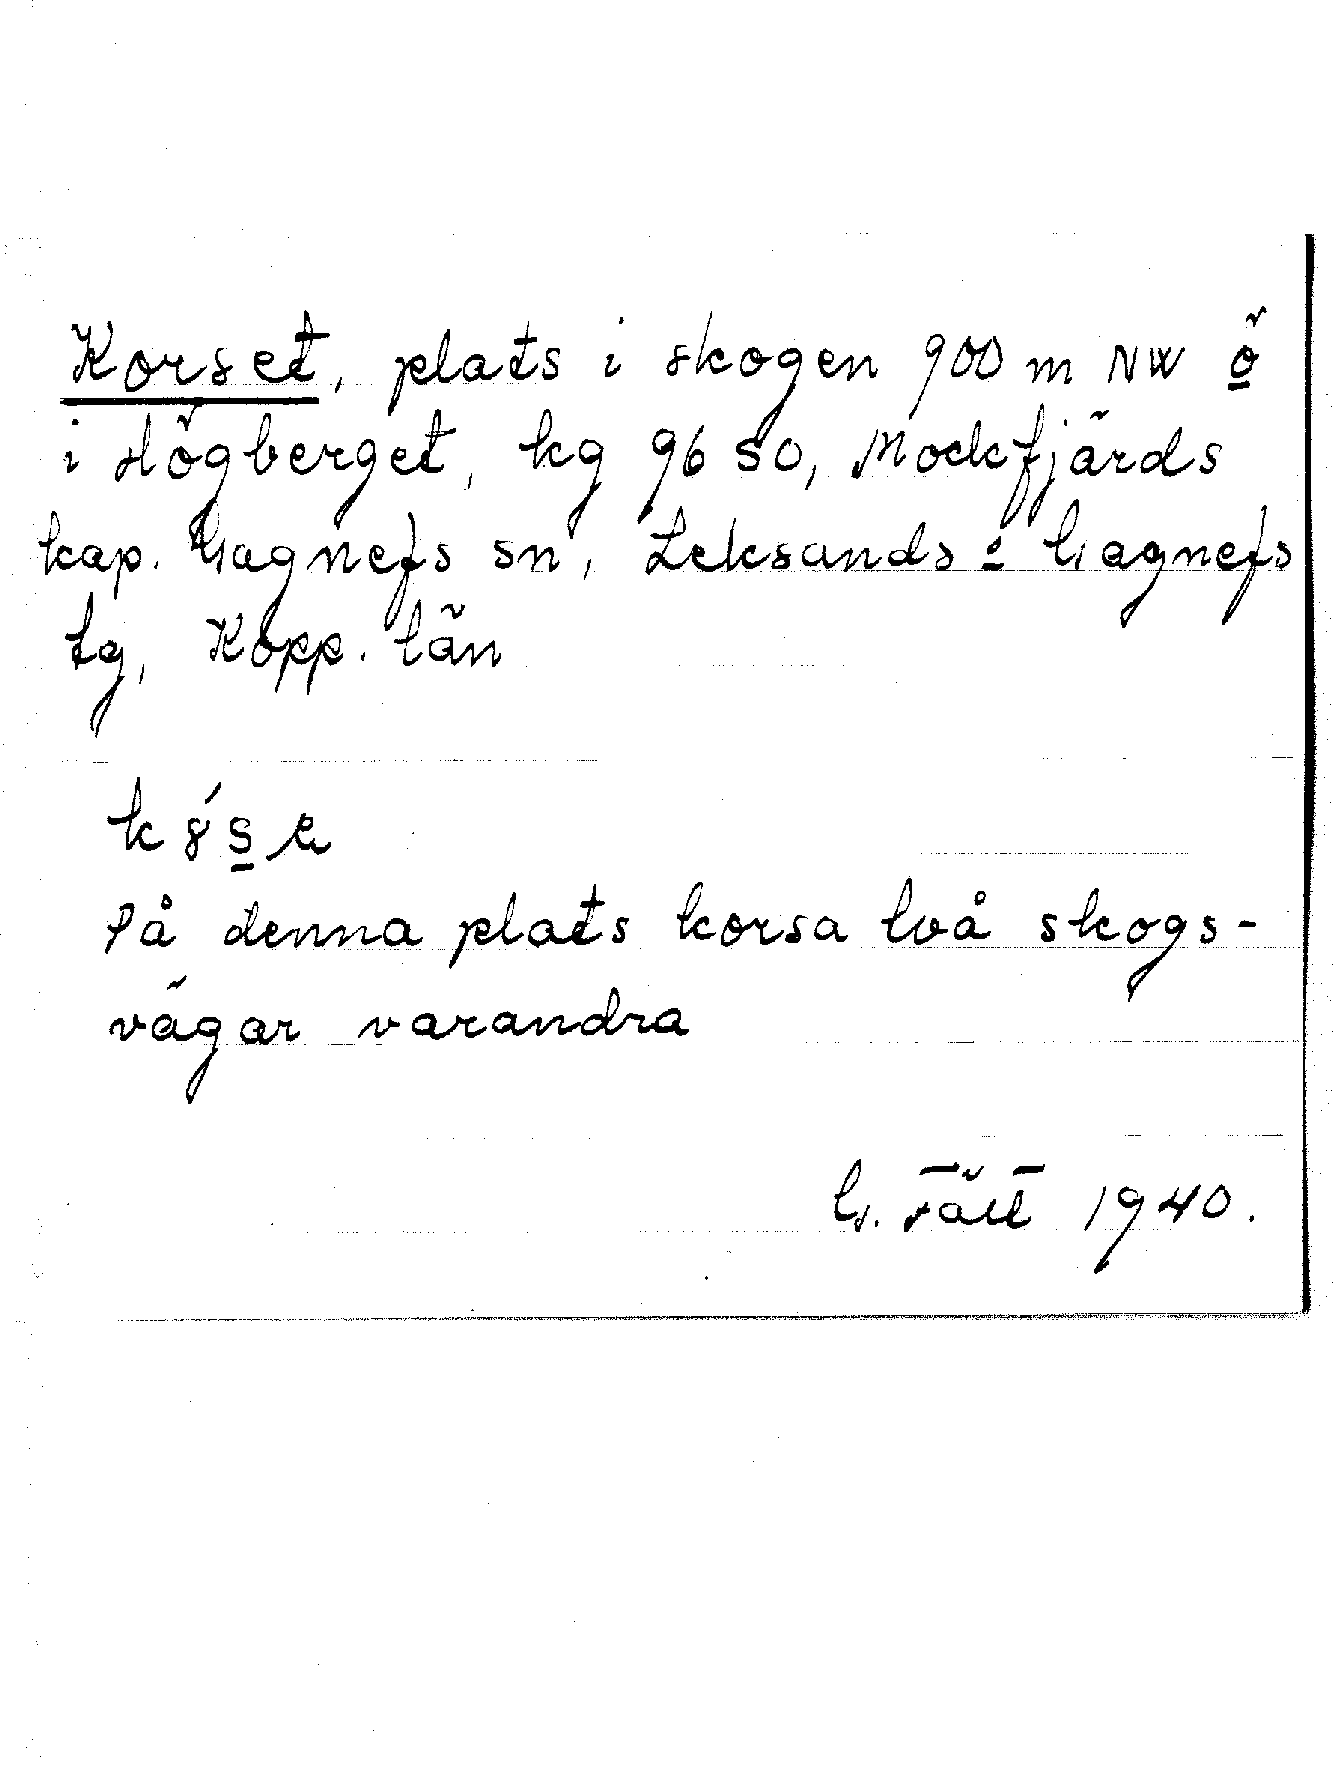 Korset, plats i skogen 900 m NW ö
i Högberget, kg 96 SO, Mockfjärds
kap. Gagnefs sn, Leksands o Gagnefs
tg, Kopp. län
På denna plats korsa två skogs-
vägar varandra
G. Fält 1940.